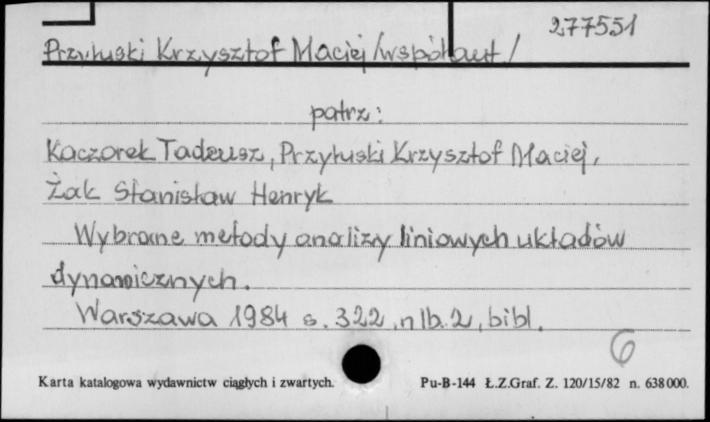 277551
Przyłuski Krzysztof Maciej /współaut/
patrz:
Kaczorek Tadeusz, Przyłuski Krzysztof Maciej,
Żak Stanisław Henryk
Wybrane metody analizy liniowych układów
dynamicznych.
Warszawa 1984 s. 322, nlb. 2, bibl.
6
Karta katalogowa wydawnictw ciągłych i zwartych.
Pu-B-144 Ł.Z.Graf. Z. 120/15/82 n. 638000.